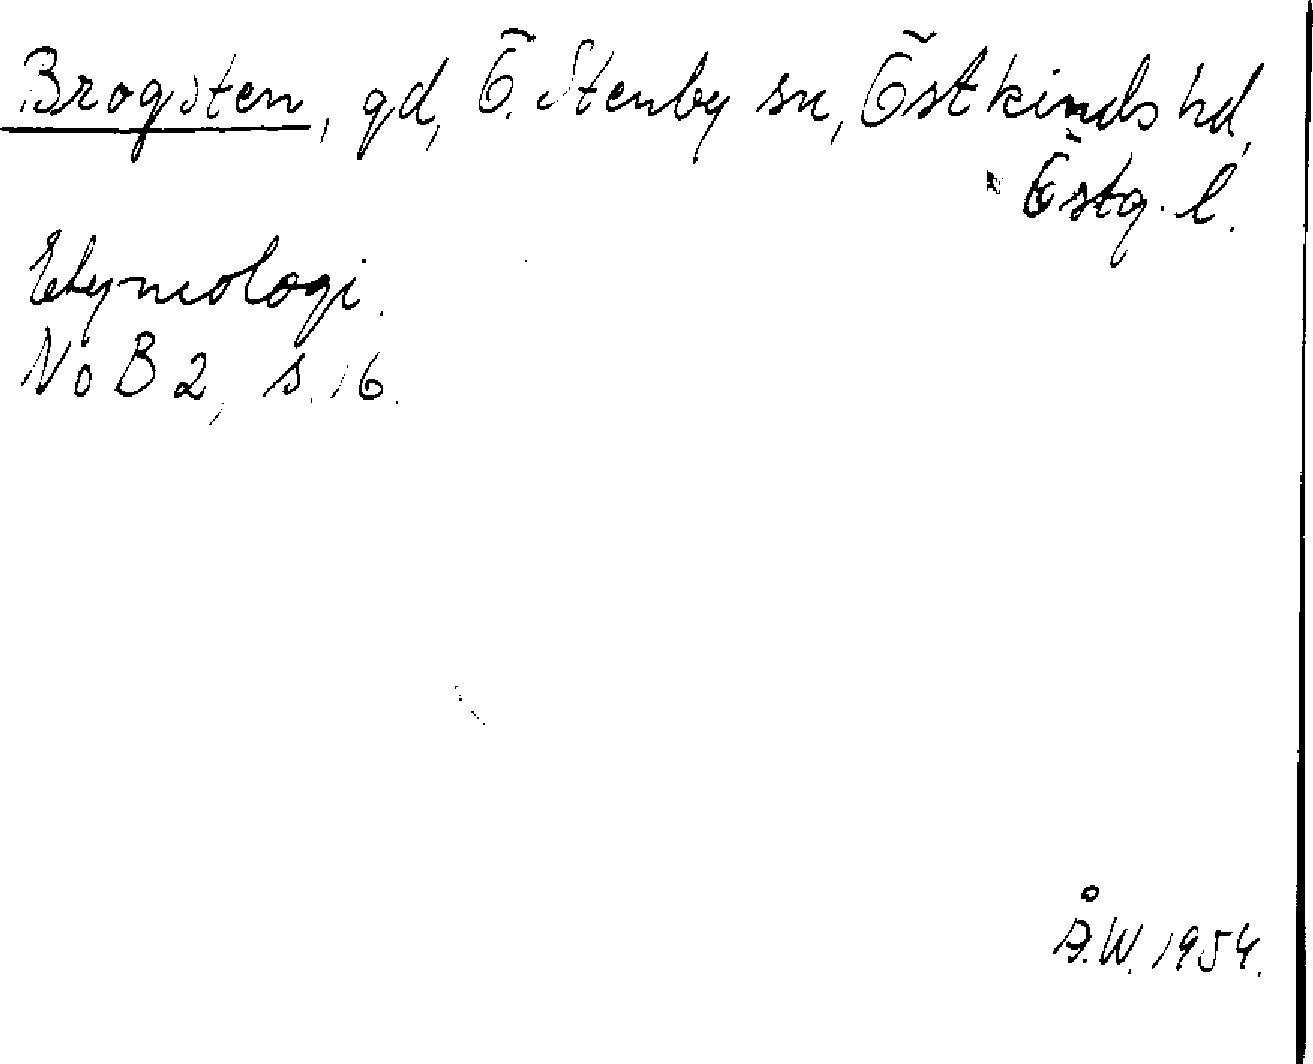 Brogsten, gd, Ö. Stenby sn, Östkinds hd,
Östg. l.
Etymologi.
NoB 2, s. 16.
Å.W. 1954.